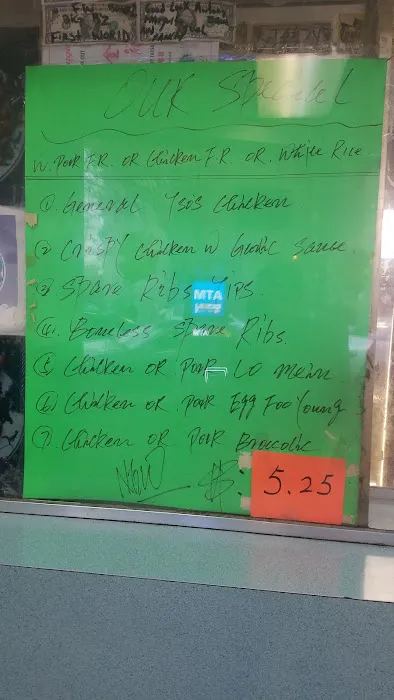 FW
BIG BZ
FIRST WORLD
Good Luck
OUR SPECIAL
W. PORK F.R. OR Chicken F.R. OR. White Rice
① General Tsis Chicken
② Crispy chicken w Garlic Sauce
③ Spare Ribs Tips
④. Boneless Spare Ribs.
⑤ Chicken OR Pork Lo mein
⑥ Chicken OR Pork Egg Foo Young
⑦. Chicken OR Pork Broccolic
MTA
NOW $: 5.25